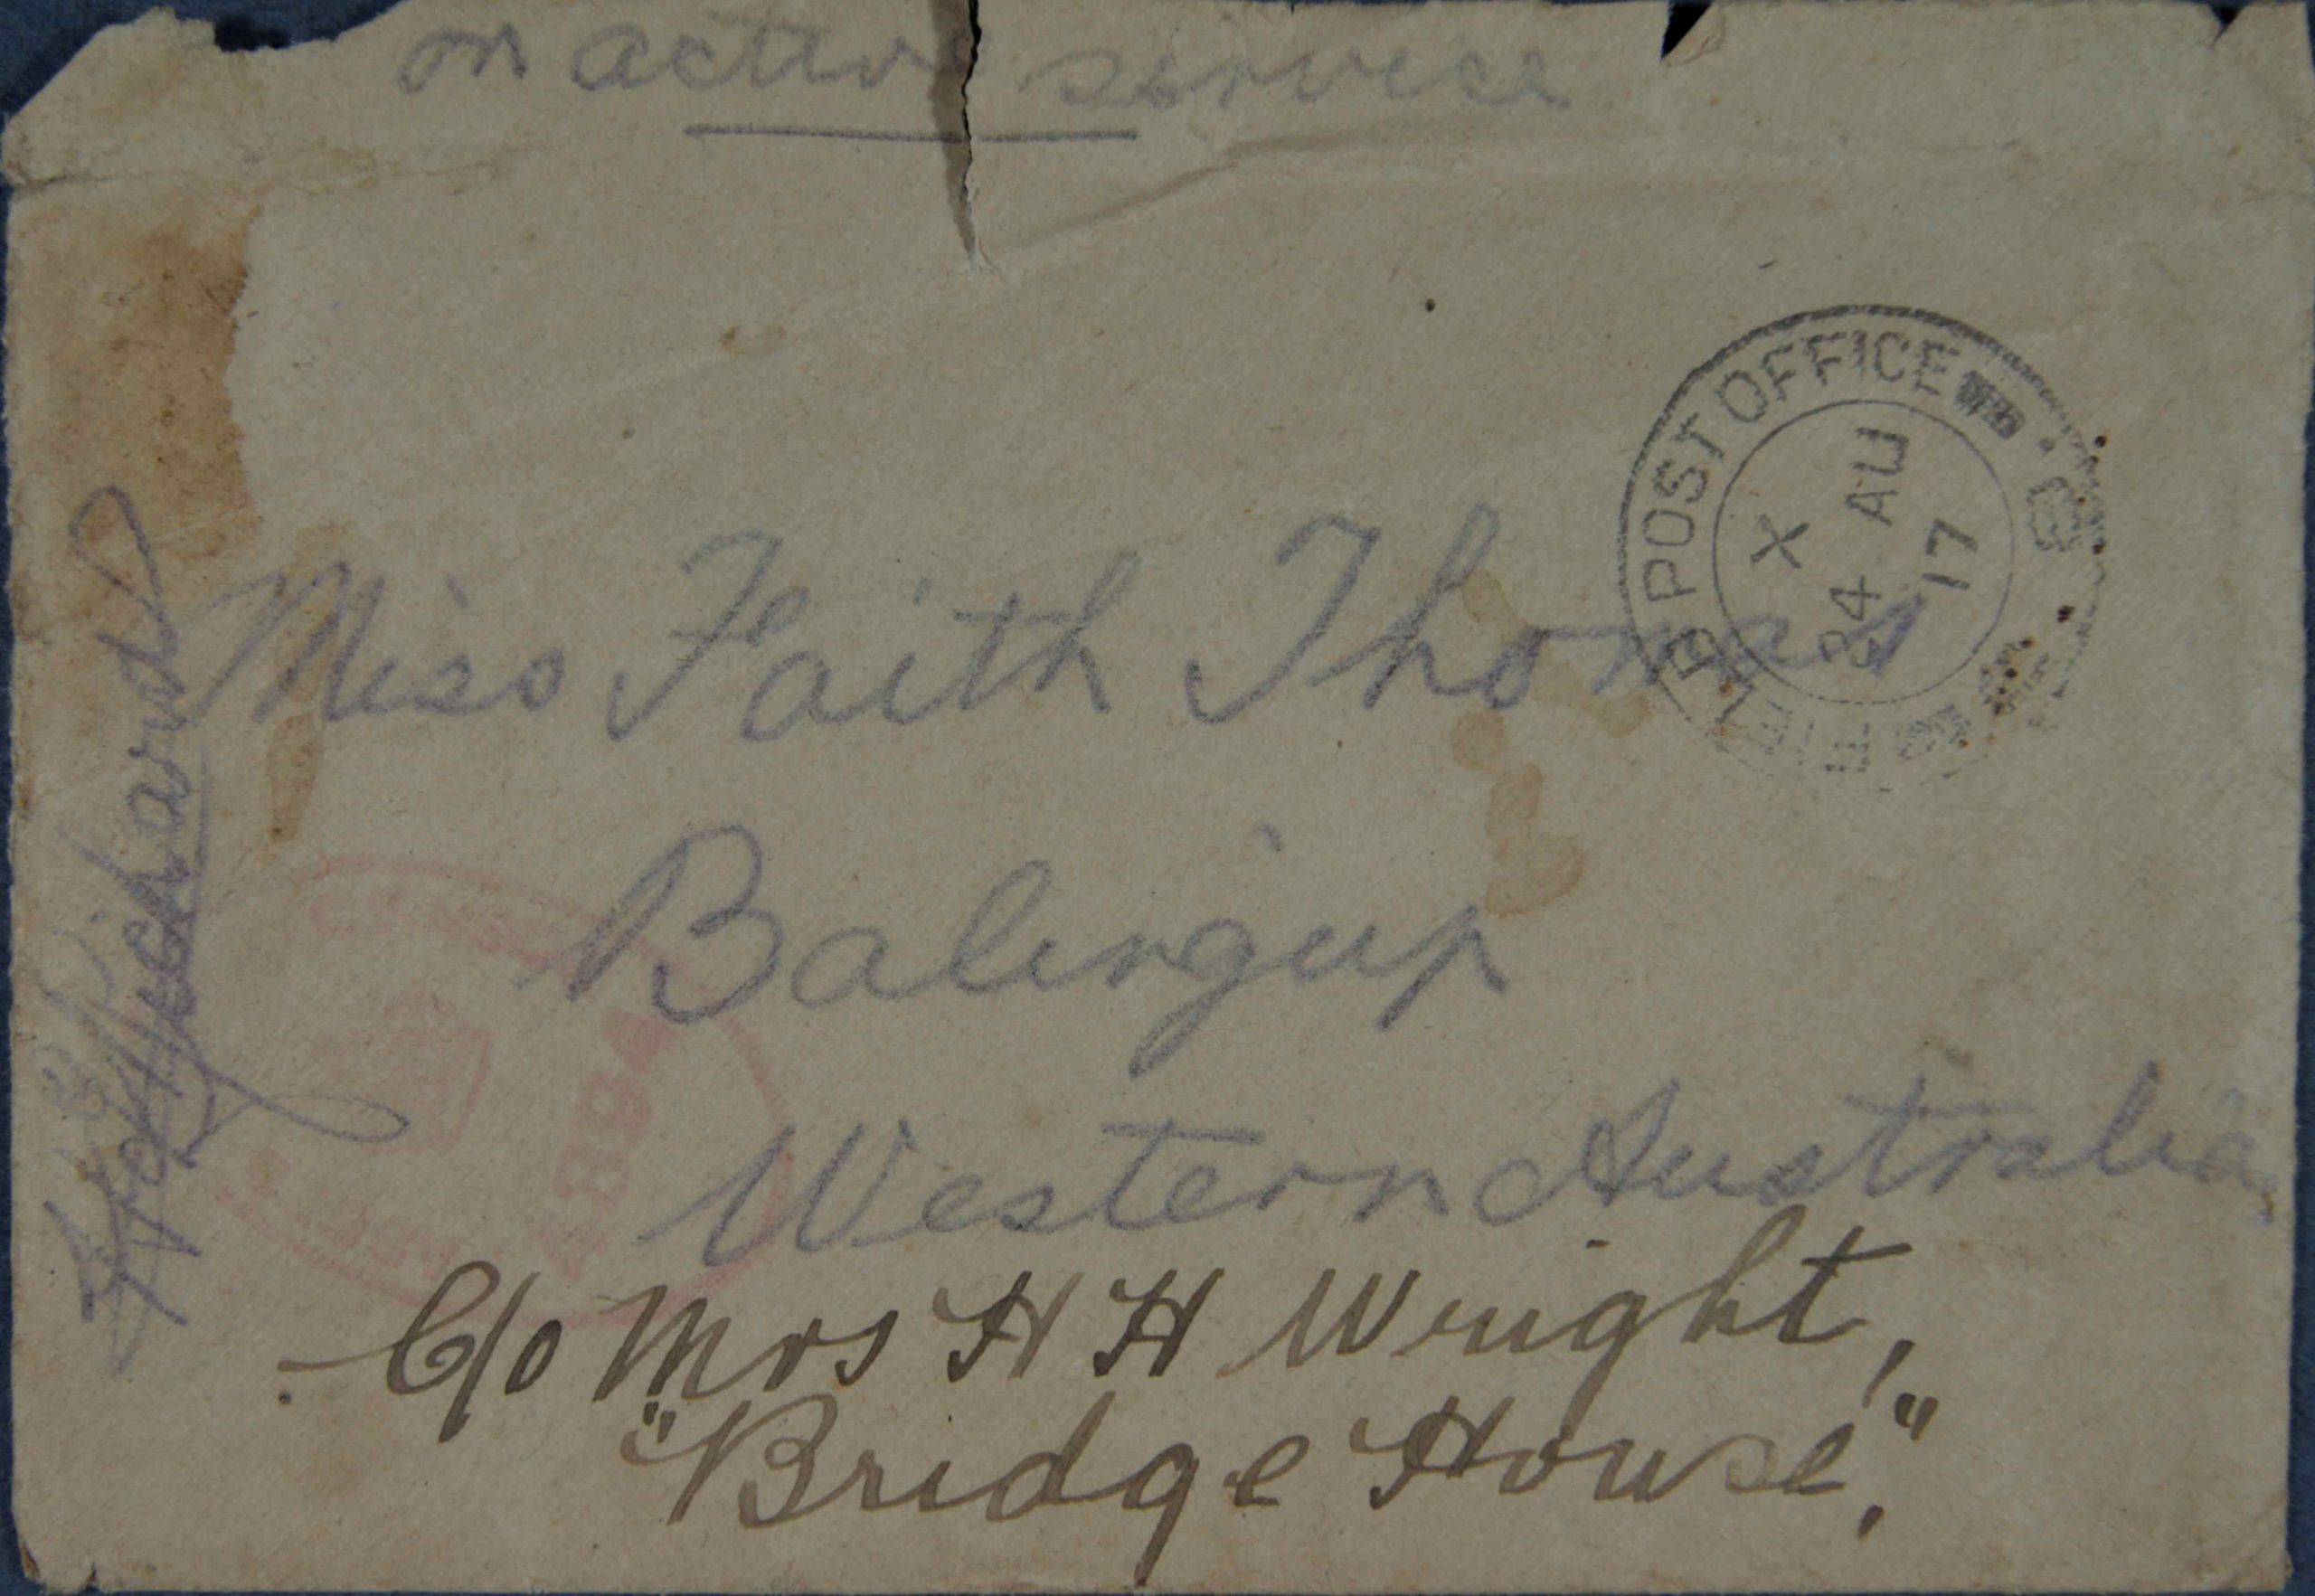 on active service
FIELD POST OFFICE
X
24 AU
17
Miss Faith Thomas
Balingup
Western Australia,
C/o Mrs H H Wright,
"Bridge House,"
4894